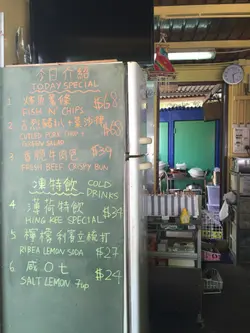 今日介紹
TODAY SPECIAL
1 炸魚薯條 $68
FISH N' CHIPS
2 吉列豬扒+薯沙律 $68
CUTLET PORK CHOP +
POTATO SALAD
3 香脆牛肉包 $39
FRESH BEEF CRISPY BUN
凍特飲 COLD
DRINKS
4 薄荷特飲 $34
HING KEE SPECIAL
5 檸檬利賓立梳打
RIBEA LEMON SODA $27
6 咸〇七 $24
SALT LEMON 7up